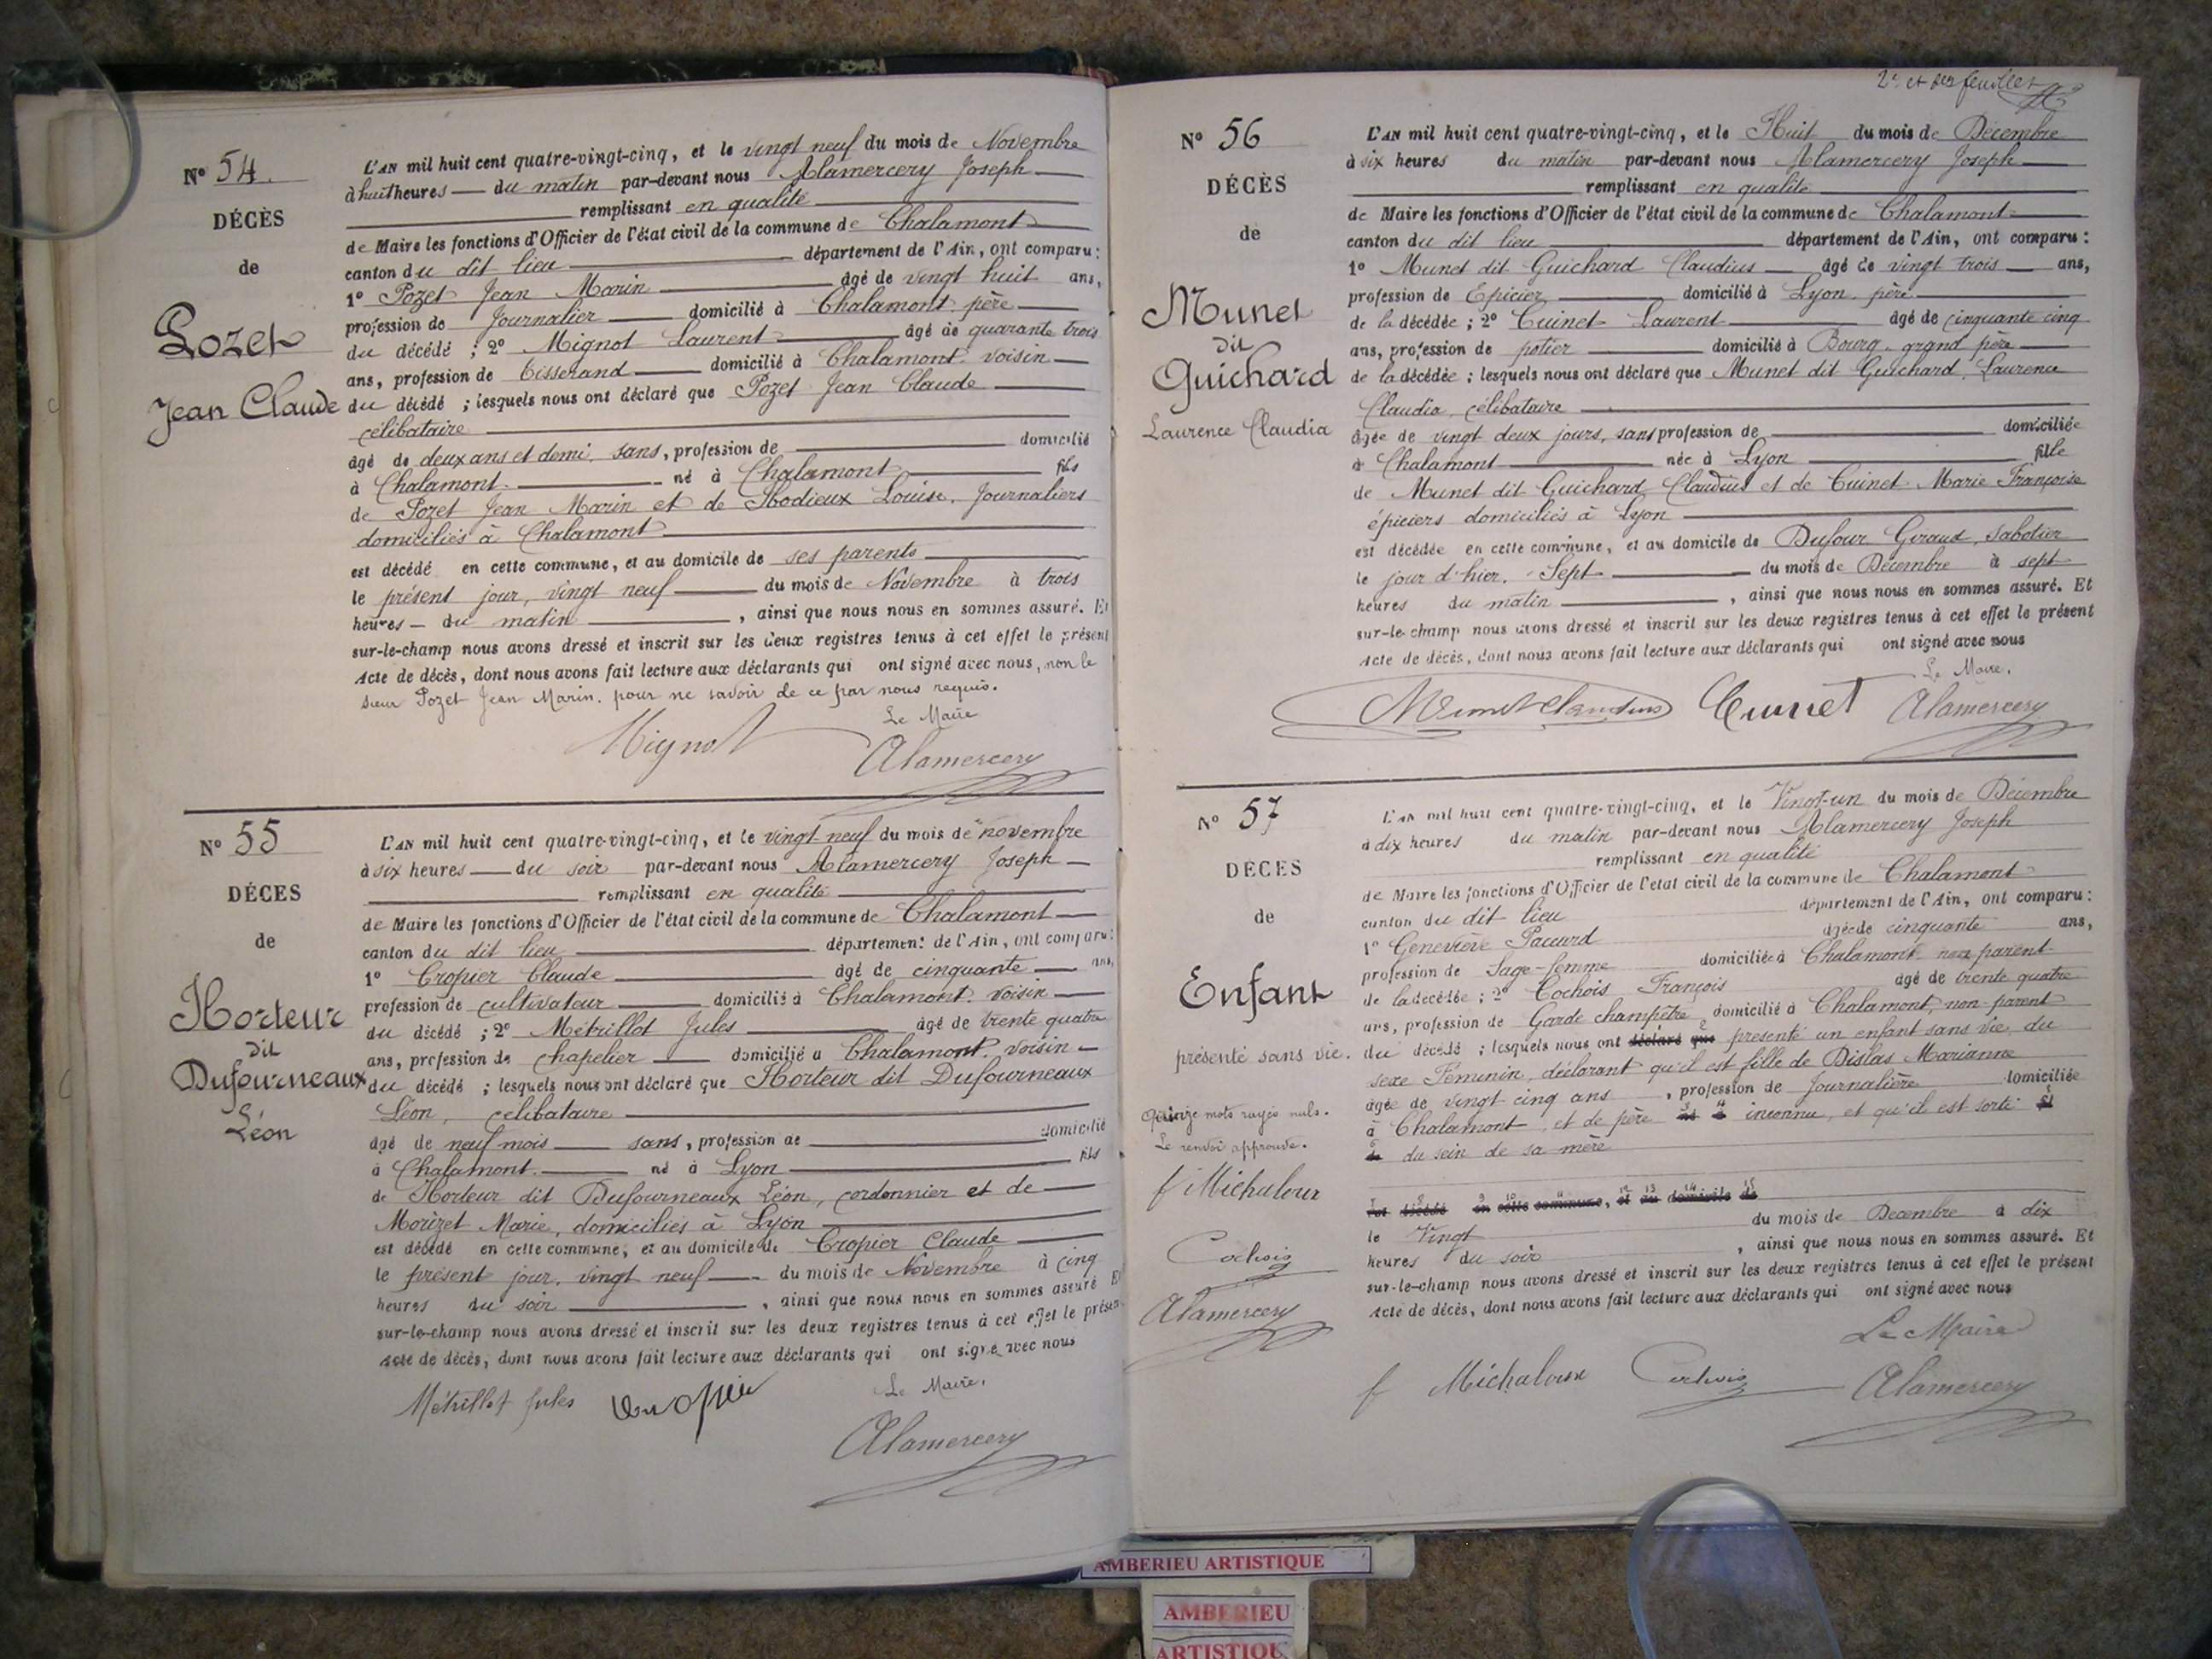 Nº 54.
DÉCÈS
de
Pozet
Jean Claude
L'AN mil huit cent quatre-vingt-cinq, et le vingt neuf du mois de Novembre
à huit heures du matin par-devant nous Alamercery Joseph
remplissant en qualité
de Maire les fonctions d'Officier de l'état civil de la commune de Chalamont
canton du dit lieu département de l'Ain, ont comparu :
1º Pozet Jean Marin âgé de vingt huit ans,
profession de Journalier domicilié à Chalamont. père
du décédé ; 2º Mignot Laurent âgé de quarante trois
ans, profession de Tisserand domicilié à Chalamont. voisin
du décédé ; lesquels nous ont déclaré que Pozet Jean Claude
célibataire
âgé de deux ans et demi, sans, profession de domicilié
à Chalamont. né à Chalamont fils
de Pozet Jean Marin et de Louise. Journaliers
domiciliés à Chalamont
est décédé en cette commune, et au domicile de ses parents
le présent jour, vingt neuf du mois de Novembre à trois
heures du matin , ainsi que nous nous en sommes assuré. Et
sur-le-champ nous avons dressé et inscrit sur les deux registres tenus à cet effet le présent
Acte de décès, dont nous avons fait lecture aux déclarants qui ont signé avec nous, non le
sieur Pozet Jean Marin. pour ne savoir de ce par nous requis.
Le Maire
Mignot Alamercery
Nº 55
DÉCES
de
Horteur
dit
Dufourneaux
Léon
L'AN mil huit cent quatre-vingt-cinq, et le vingt neuf du mois de novembre
à six heures du soir par-devant nous Alamercery Joseph
remplissant en qualité
de Maire les fonctions d'Officier de l'état civil de la commune de Chalamont
canton du dit lieu département de l'Ain, ont comparu :
1º Cropier Claude âgé de cinquante ans,
profession de cultivateur domicilié à Chalamont. voisin
du décédé ; 2º Métrillot Jules âgé de trente quatre
ans, profession de chapelier domicilié à Chalamont. voisin
du décédé ; lesquels nous ont déclaré que Horteur dit Dufourneaux
Léon, célibataire
âgé de neuf mois sans, profession de domicilié
à Chalamont. né à Lyon fils
de Horteur dit Dufourneaux Léon, cordonnier et de
Morizet Marie, domiciliés à Lyon
est décédé en cette commune, et au domicile de Cropier Claude
le présent jour, vingt neuf du mois de Novembre à cinq
heures du soir , ainsi que nous nous en sommes assuré Et
sur-le-champ nous avons dressé et inscrit sur les deux registres tenus à cet effet le présent
Acte de décès, dont nous avons fait lecture aux déclarants qui ont signé avec nous
Le Maire.
Métrillot Jules Cropier
Alamercery
2e et der feuillet
Nº 56
DÉCÈS
de
Munet
dit
Guichard
Laurence Claudia
L'AN mil huit cent quatre-vingt-cinq, et le Huit du mois de Décembre
à six heures du matin par-devant nous Alamercery Joseph
remplissant en qualité
de Maire les fonctions d'Officier de l'état civil de la commune de Chalamont
canton du dit lieu département de l'Ain, ont comparu :
1º Munet dit Guichard Claudius âgé de vingt trois ans,
profession de Epicier domicilié à Lyon. père
de la décédée ; 2º Cuinet Laurent âgé de cinquante cinq
ans, profession de potier domicilié à Bourg. grand père
de la décédée ; lesquels nous ont déclaré que Munet dit Guichard, Laurence
Claudia, célibataire
âgée de vingt deux jours, sans profession de domiciliée
à Chalamont née à Lyon fille
de Munet dit Guichard Claudius et de Cuinet Marie Françoise
épiciers domiciliés à Lyon
est décédée en cette commune, et au domicile de Dufour Giraud, sabotier
le jour d'hier. Sept du mois de Décembre à sept
heures du matin , ainsi que nous nous en sommes assuré. Et
sur-le-champ nous avons dressé et inscrit sur les deux registres tenus à cet effet le présent
Acte de décès, dont nous avons fait lecture aux déclarants qui ont signé avec nous
Le Maire.
Munet Claudius Cuinet Alamercery
Nº 57
DÉCES
de
Enfant
présenté sans vie.
Quinze mots rayés nuls.
Le renvoi approuvé.
f Michaloux
Cochois
Alamercery
L'AN mil huit cent quatre-vingt-cinq, et le Vingt-un du mois de Décembre
à dix heures du matin par-devant nous Alamercery Joseph
remplissant en qualité
de Maire les fonctions d'Officier de l'état civil de la commune de Chalamont
canton du dit lieu département de l'Ain, ont comparu :
1º Geneviève Paccard âgée de cinquante ans,
profession de Sage-femme domiciliée à Chalamont non parent
de la décédée ; 2º Cochois François âgé de trente quatre
ans, profession de Garde champêtre domicilié à Chalamont, non parent
du décédé ; lesquels nous ont déclaré que présenté un enfant sans vie du
sexe Féminin, déclarant qu'il est fille de Dislas Marianne
âgée de vingt cinq ans , profession de Journalière domiciliée
à Chalamont, et de père inconnu, et qu'il est sorti
du sein de sa mère
est décédé en cette commune, et au domicile de
le Vingt du mois de Decembre à dix
heures du soir , ainsi que nous nous en sommes assuré. Et
sur-le-champ nous avons dressé et inscrit sur les deux registres tenus à cet effet le présent
Acte de décès, dont nous avons fait lecture aux déclarants qui ont signé avec nous
Le Maire
f Michaloux Cochois Alamercery
AMBERIEU ARTISTIQUE
AMBERIEU
ARTISTIQUE